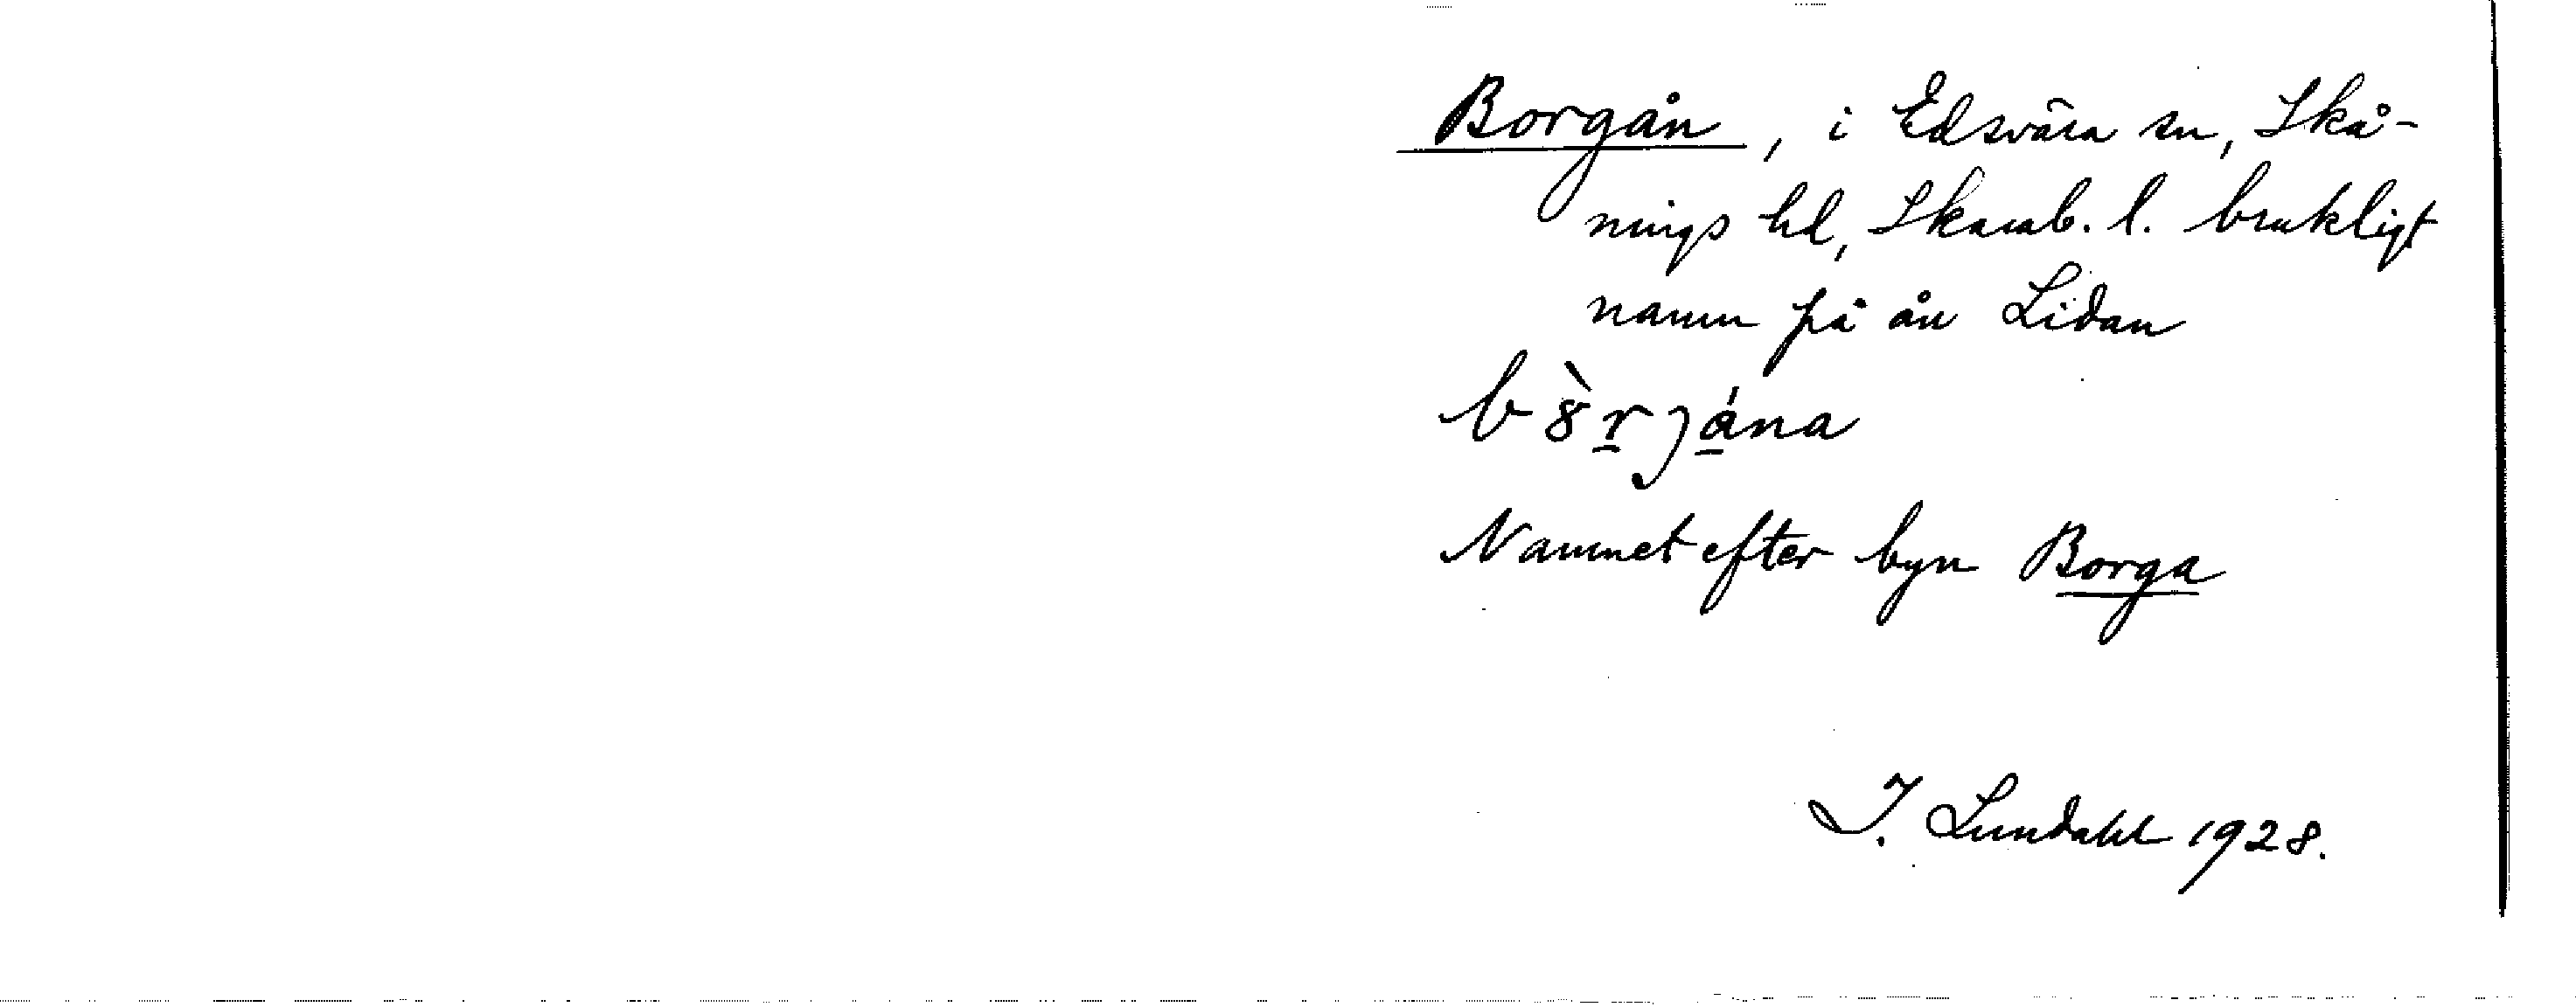 Borgån, i Edsvära sn, Skå-
nings hd, Skarab. l. brukligt
namn på ån Lidan
b8̀r̲ȷá̲na
Namnet efter byn Borga
I. Lundahl 1928.